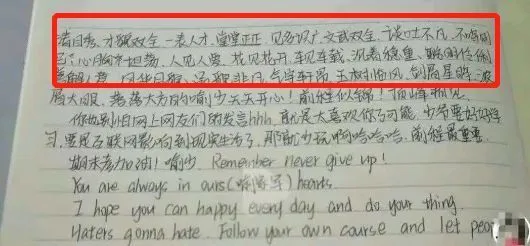 清目秀、才貌双全、一表人才、堂堂正正、见多识广、文武双全、谈吐不凡、不鸣则
已、心胸坦荡、人见人爱、花见花开、车见车载、沉着稳重、聪明伶俐
风华月貌、英明非凡、气宇轩昂、玉树临风、剑眉星眸、浓
眉大眼、落落大方的喻少天天开心！前程似锦！顶峰相见。
你也别怕网上网友们的发言hhh，都是太喜欢你了可能，少爷要好好学
习，要是互联网影响到现实生活了，那就少玩啊哈哈哈，前程最重要。
期末考加油！喻少，Remember never give up!
You are always in ours(喻家军) hearts
I hope you can happy every day and do your thing.
Haters gonna hate. Follow your own course and let peo